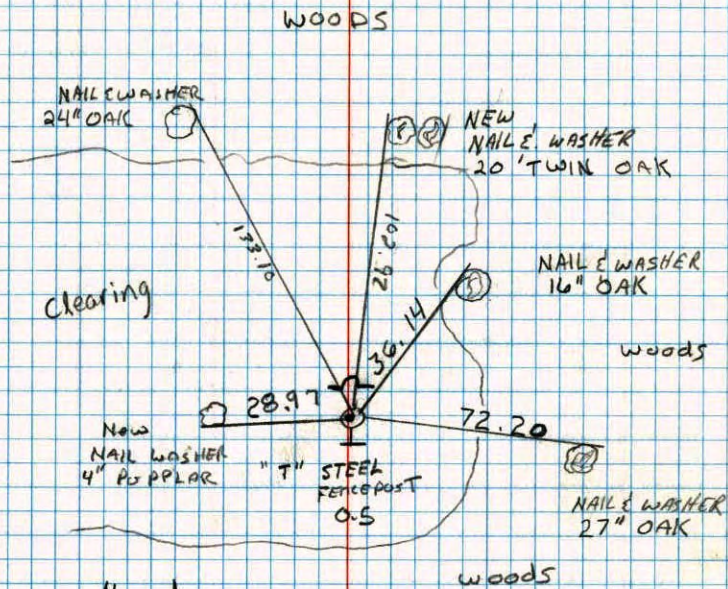 WOODS
NAIL & WASHER
24" OAK
NEW
NAIL & WASHER
20 'TWIN OAK
133.10
103.92
NAIL & WASHER
16" OAK
Clearing
36.14
woods
28.97
72.20
New
NAIL WASHER
4" POPPLAR
"T" STEEL
FENCEPOST
0.5
NAIL & WASHER
27" OAK
woods